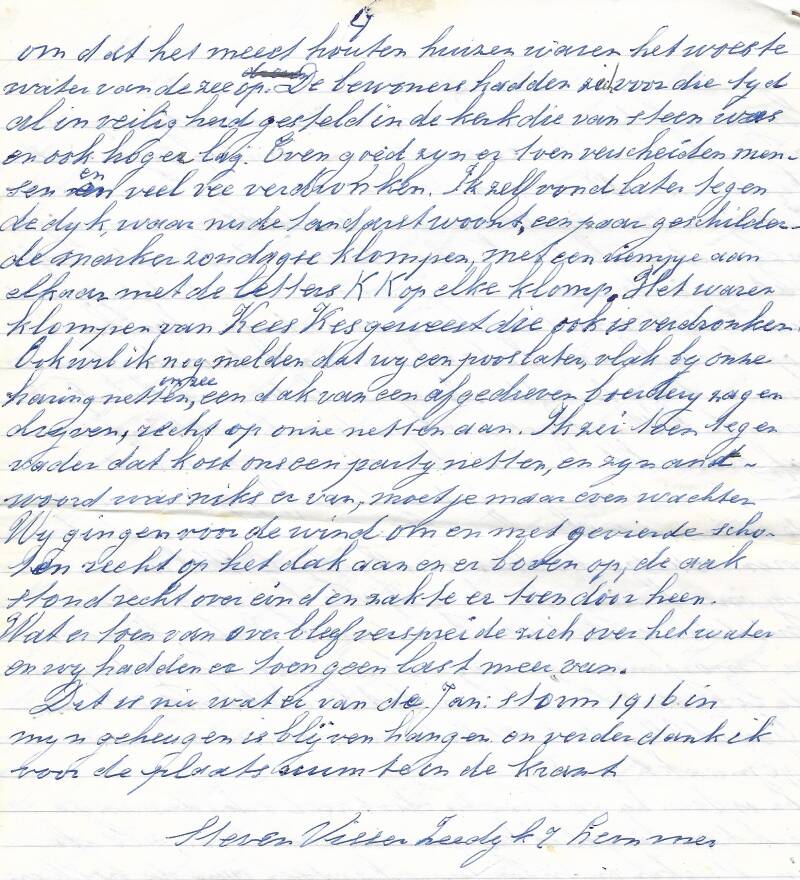 4
om dat het meest houten huizen waren het woeste
water van de zee op. De bewoners hadden zich voor die tyd
al in veiligheid gesteld in de kerk die van steen was
en ook hoger lag. Even goed zyn er toen verscheiden men-
sen en veel vee verdronken. Ik zelf vond later tegen
de dyk, waar nu de tandarst woont, een paar geschilder-
de marker zondagse klompen, met een riempje aan
elkaar met de letters K K op elke klomp. Het waren
klompen van Kees Kes geweest die ook is verdronken.
Ook wil ik nog melden dat wy een poos later, vlak by onze
haring netten, in zee een dak van een afgedreven boerdery zagen
dryven, recht op onze netten aan. Ik zei toen tegen
vader dat kost ons een party netten, en zyn ant-
woord was niks er van, moet je maar even wachten
Wy gingen voor de wind om en met gevierde scho-
ten recht op het dak aan en er boven op, de aak
stond recht over eind en zakte er toen door heen.
Wat er toen van over bleef verspreide zich over het water
en wy hadden er toen geen last meer van.
Dit is nu wat er van de Jan: storm 1916 in
myn geheugen is blijven hangen en verder dank ik
voor de plaats ruimte in de krant
Steven Visser Zeedyk 7 Lemmer